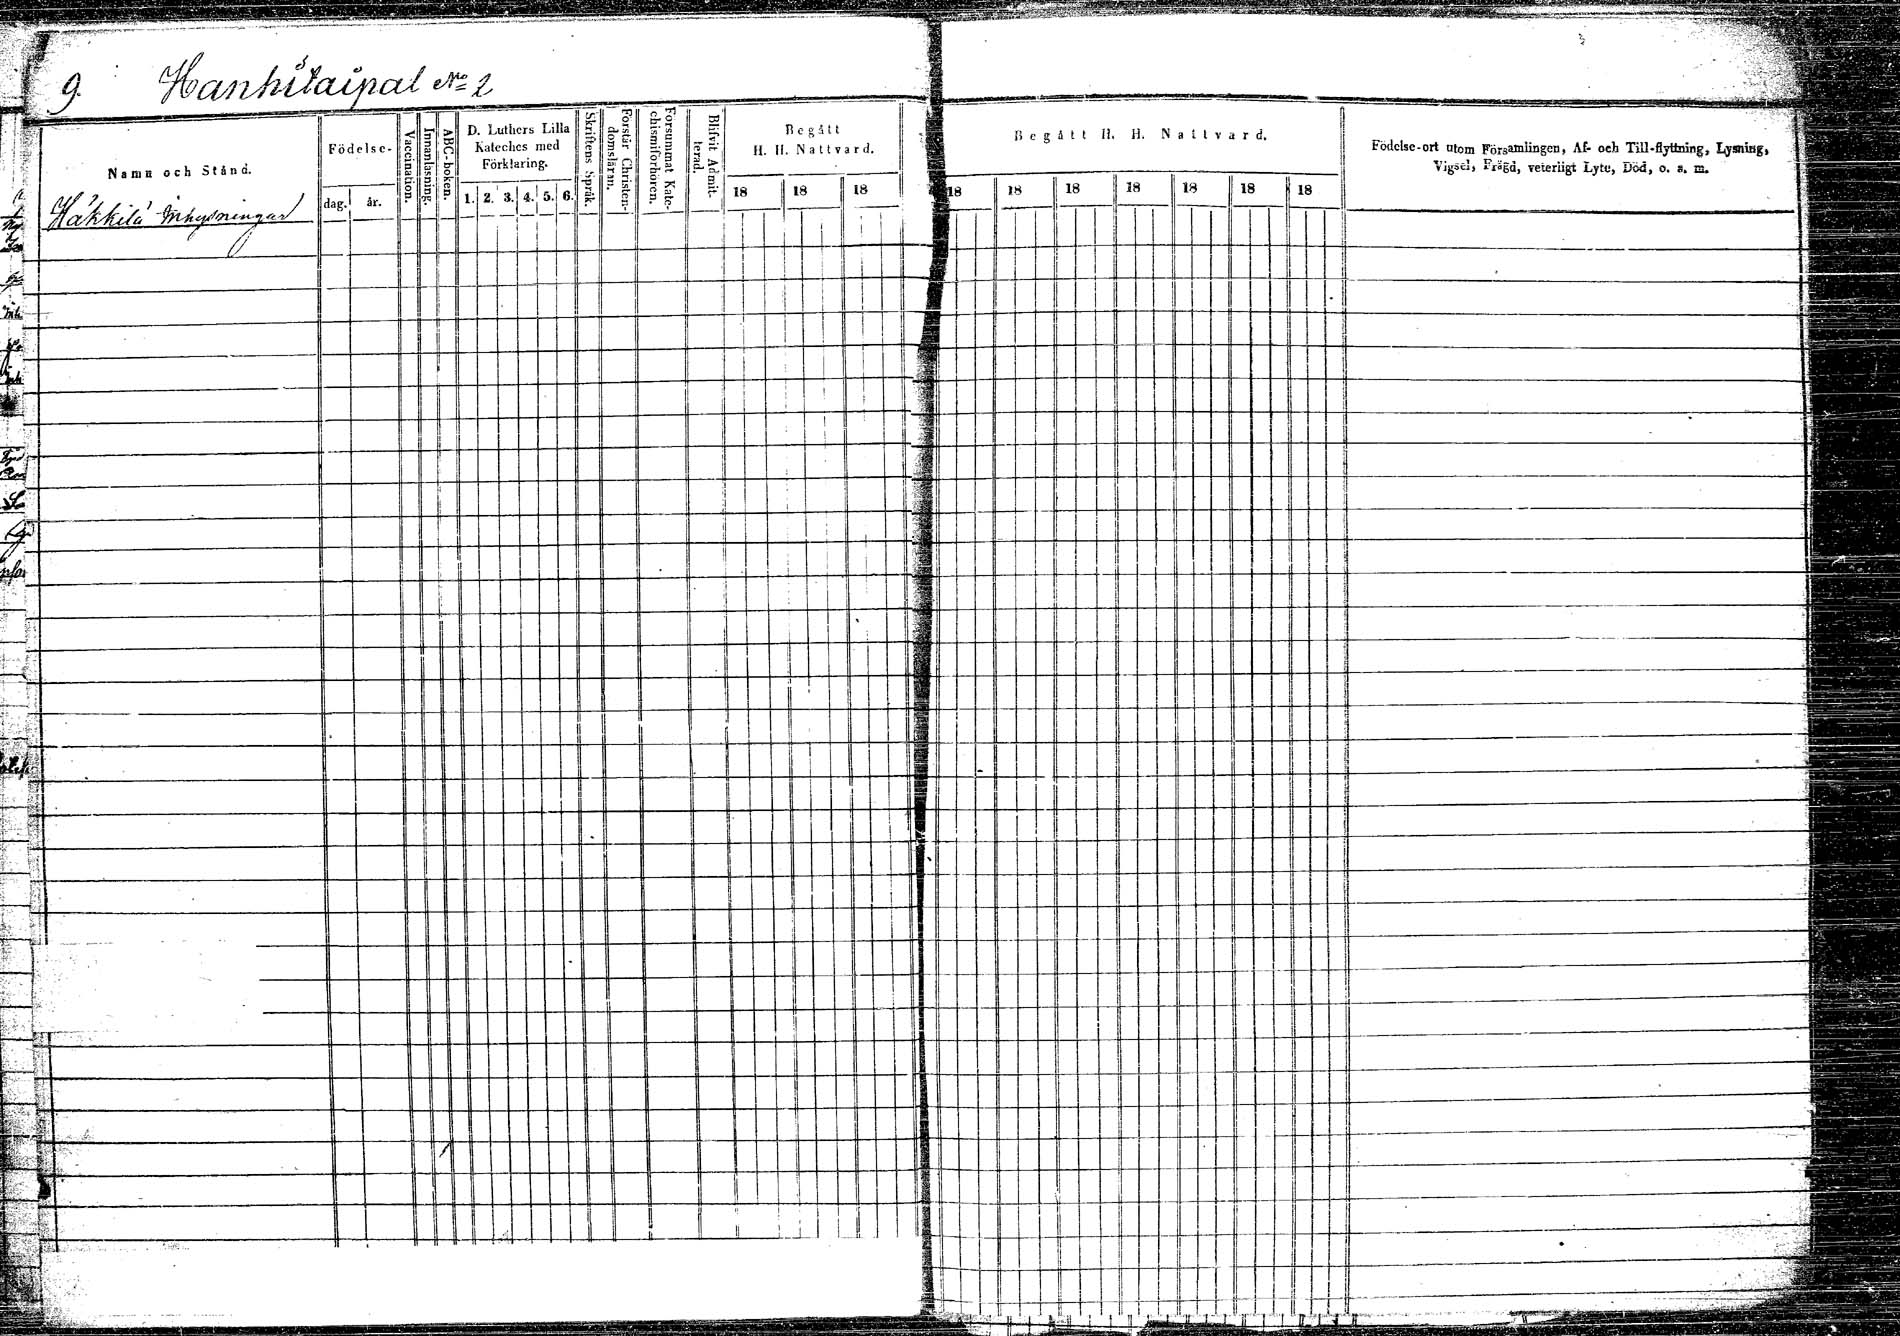 9. Hanhitaipal No 2
Namn och Stånd.
Födelse-
dag.
år.
Vaccination.
Innanläsning.
ABC-boken.
D. Luthers Lilla
Kateches med
Förklaring.
1. 2. 3. 4. 5. 6.
Skriftens Språk.
Förstår Christen-
domsläran.
Försummat Kate-
chismiförhören.
Blifvit Admit-
terad.
Begått
H. H. Nattvard.
18 18 18
Begått H. H. Nattvard.
18 18 18 18 18 18 18
Födelse-ort utom Församlingen, Af- och Till-flyttning, Lysning,
Vigsel, Frägd, veterligt Lyte, Död, o. s. m.
Häkkilä Inhysningar